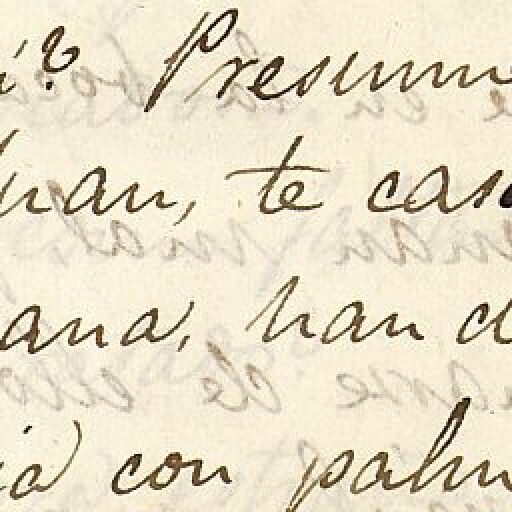 Presum
uan, te cas
ana, han d
ia con palm